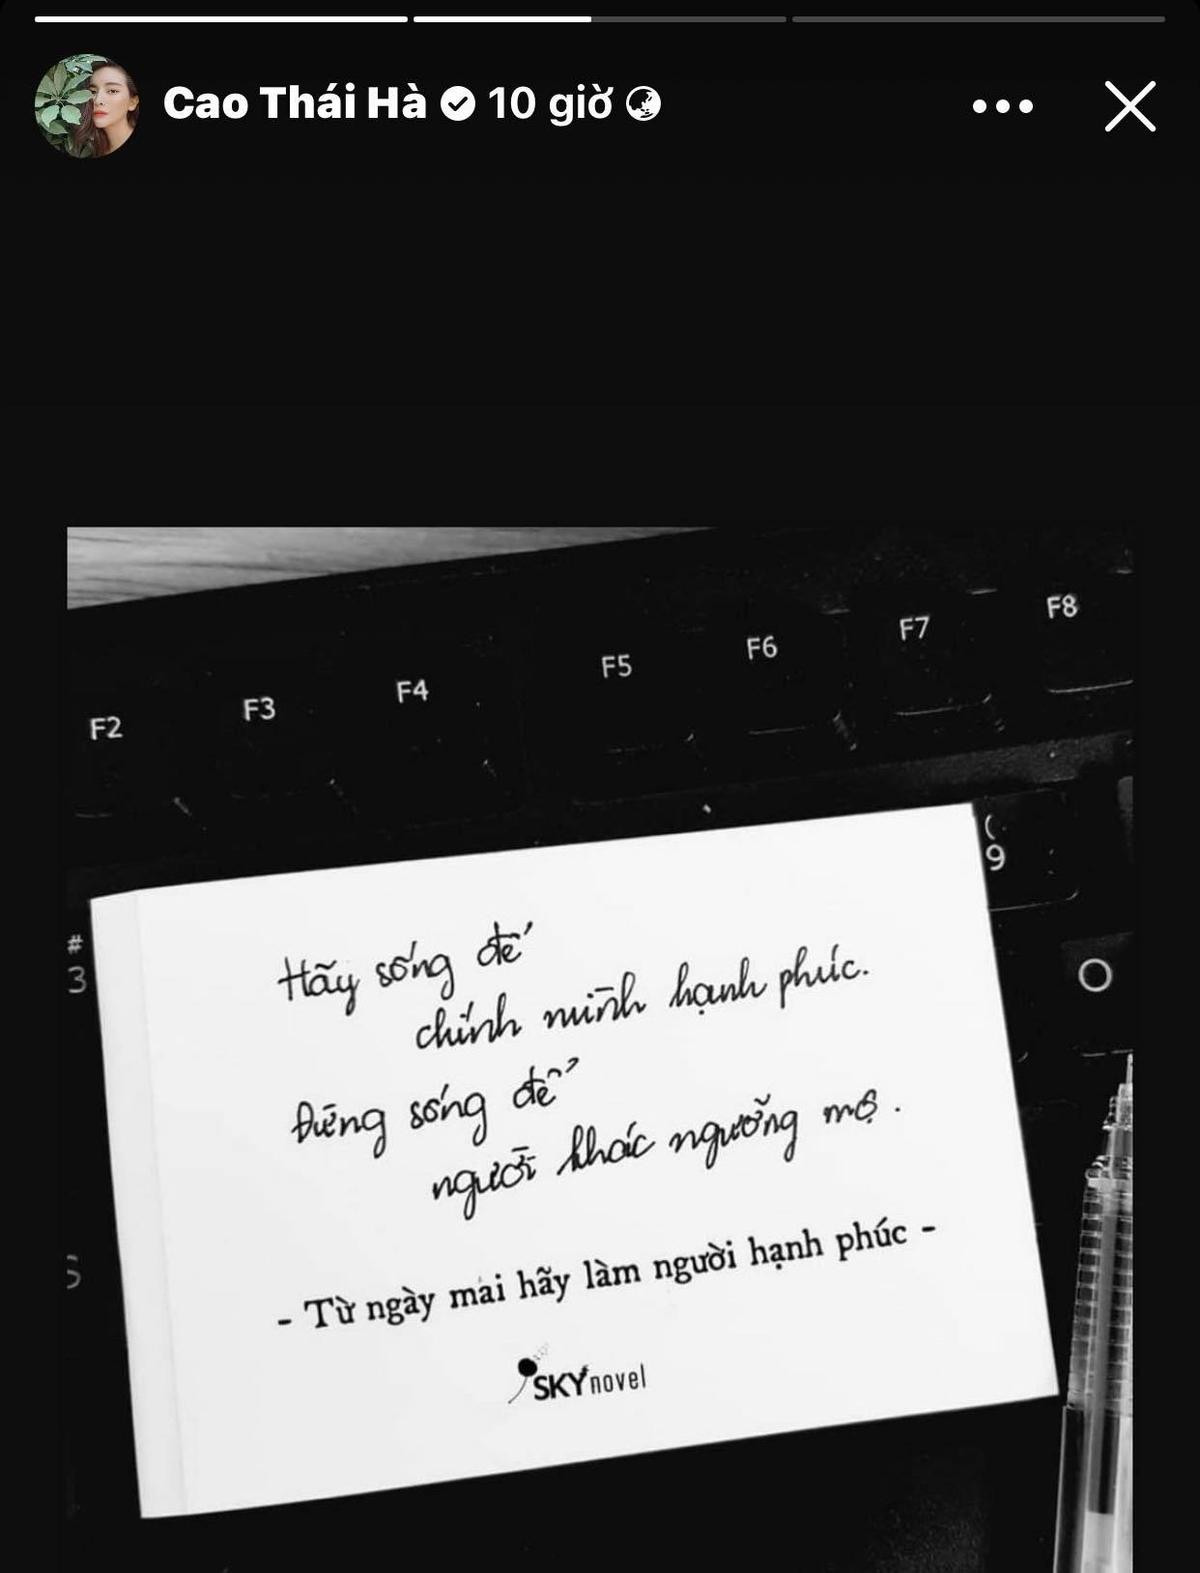 Cao Thái Hà 10 giờ
F2 F3 F4 F5 F6 F7 F8
(
9
#
3
O
Hãy sống để
chính mình hạnh phúc.
Đừng sống để
người khác ngưỡng mộ.
- Từ ngày mai hãy làm người hạnh phúc -
SKYnovel